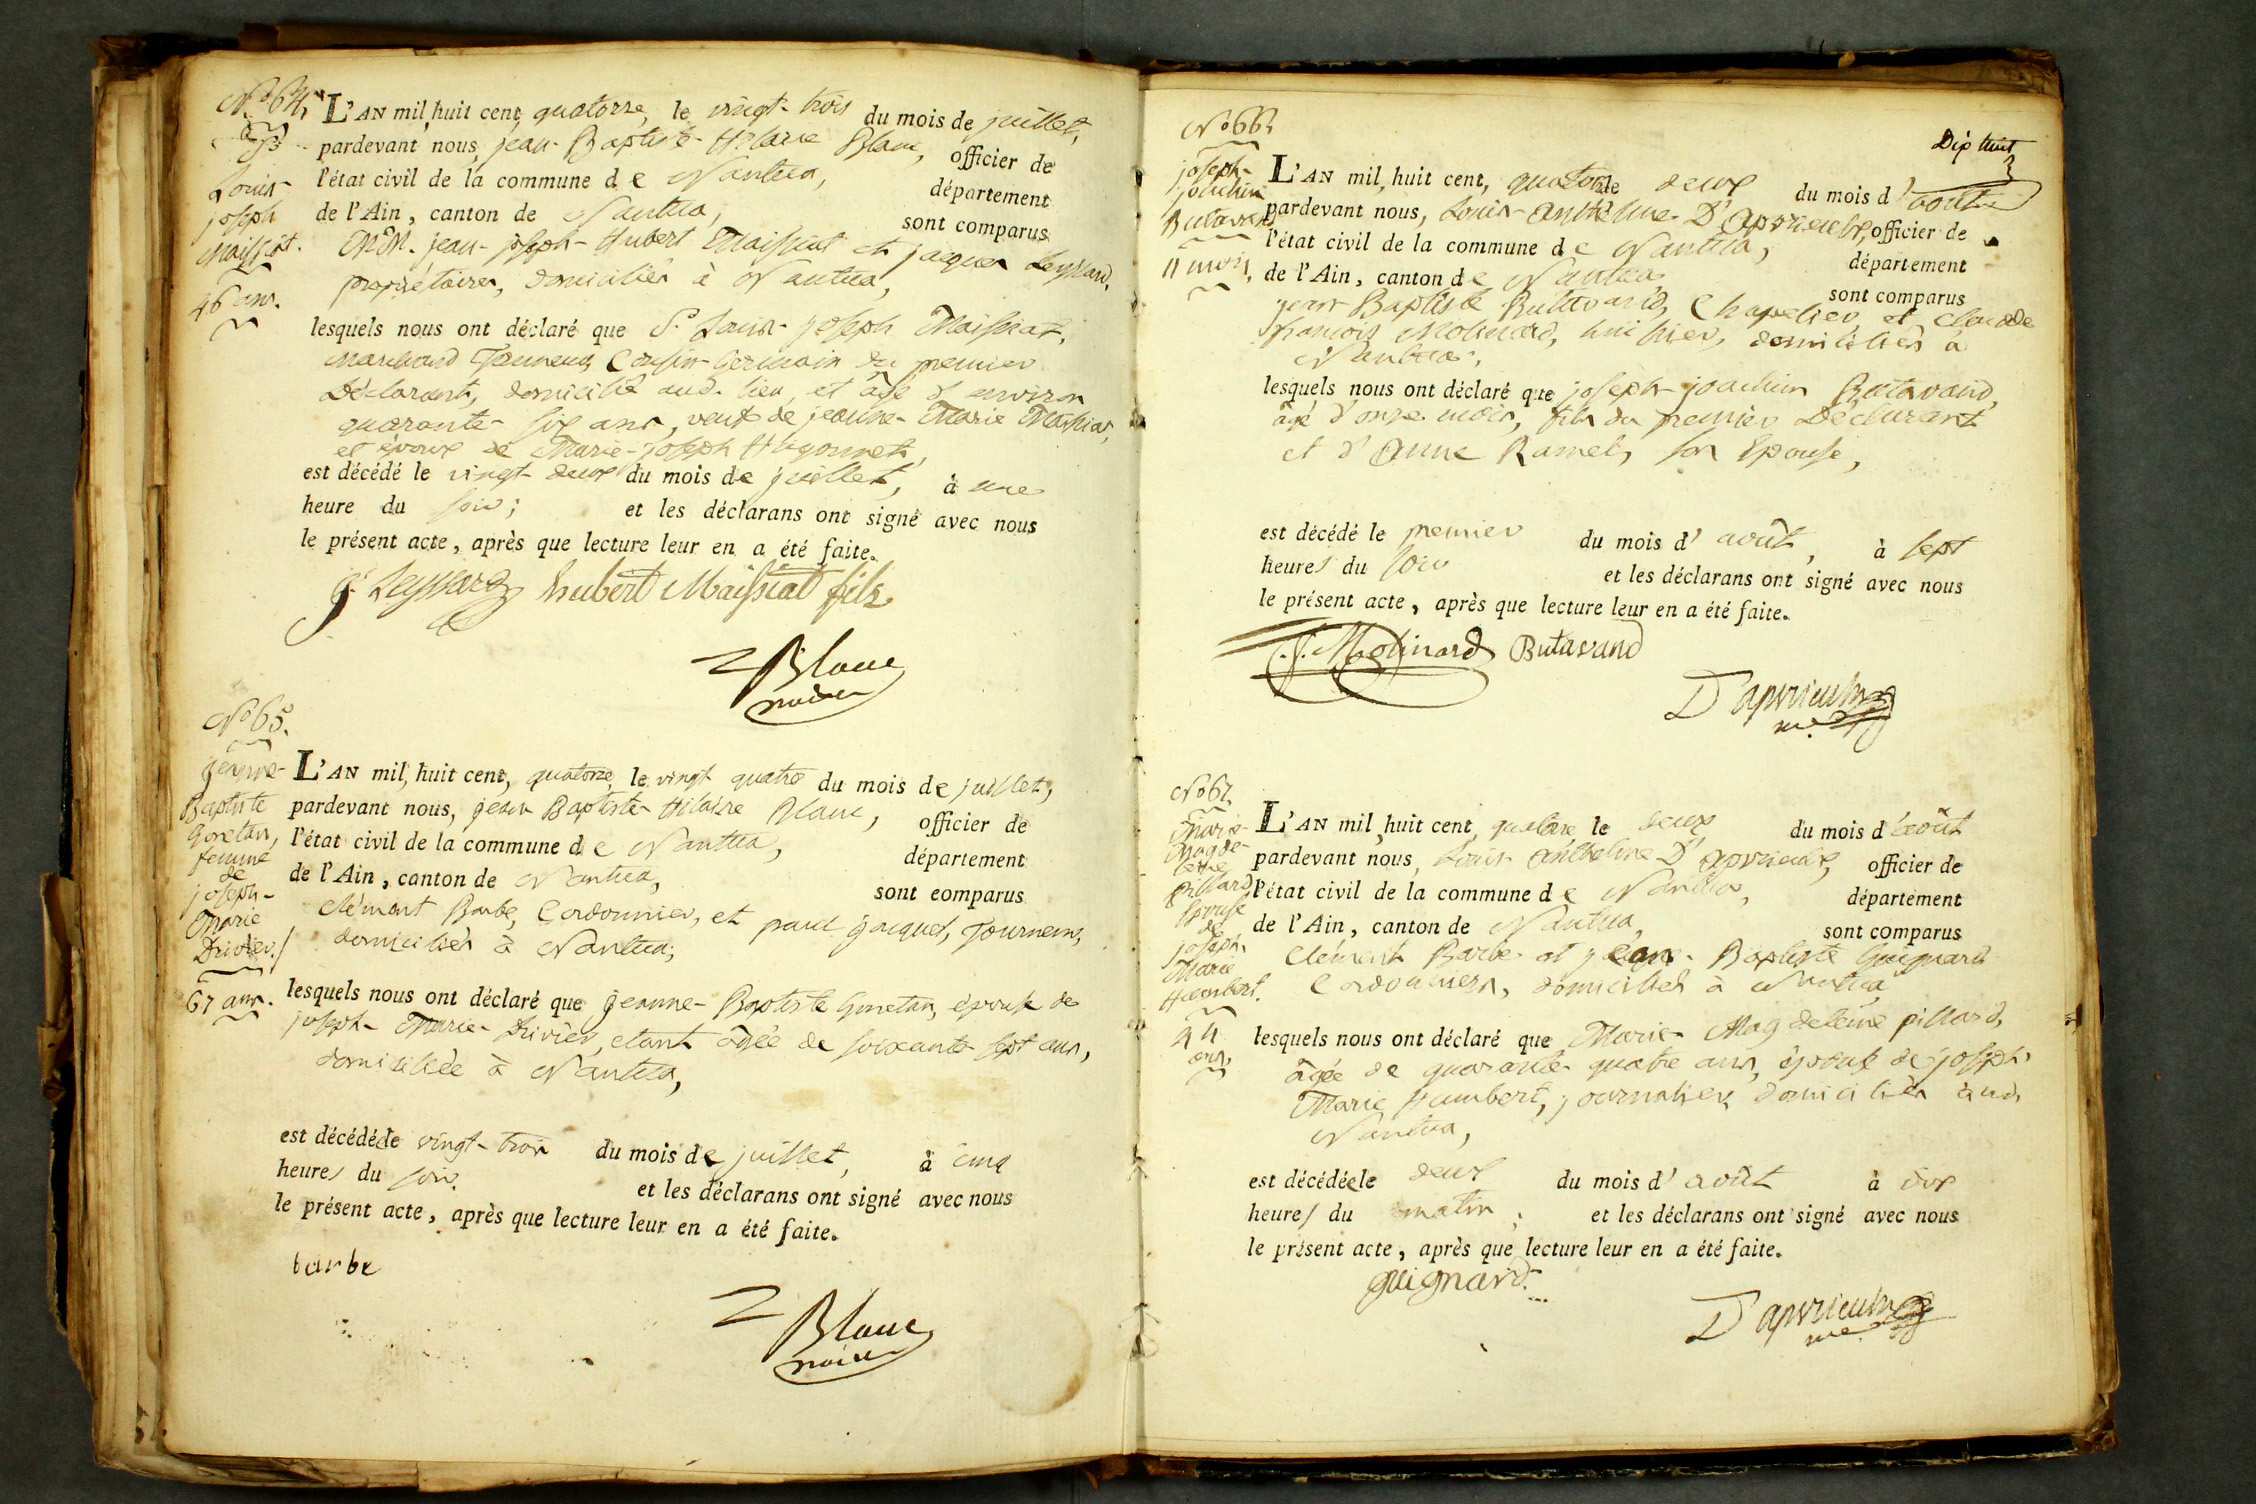 N.° 64.
S.r
Louis
joseph
Maissiat.
46 ans.
L'AN mil huit cent quatorze, le vingt-trois du mois de juillet,
pardevant nous, jean-Baptiste-Hilaire Blanc, officier de
l'état civil de la commune de Nantua, département
de l'Ain, canton de Nantua, sont comparus
MM. jean-joseph-Hubert Maissiat et jacques Leyssard,
propriétaires, domiciliés à Nantua,
lesquels nous ont déclaré que S.r Louis-joseph Maissiat,
marchand Tanneur, Cousin Germain du premier
Déclarant, domicilié aud. lieu, et âgé d'environ
quarante-six ans, veuf de jeanne-Marie
et époux de Marie-joseph Hugonnet,
est décédé le vingt-deux du mois de juillet, à une
heure du soir; et les déclarans ont signé avec nous
le présent acte, après que lecture leur en a été faite.
j. Leyssard hubert Maissiat fils
Blanc
N.° 65.
jeanne-
Baptiste
Goretan,
femme
de
joseph-
Marie
Drivier.
67 ans.
L'AN mil huit cent, quatorze, le vingt quatre du mois de juillet,
pardevant nous, jean Baptiste-Hilaire Blanc, officier de
l'état civil de la commune de Nantua, département
de l'Ain, canton de Nantua, sont comparus
Clément Barbe, Cordonnier, et paul jacquet, Tourneur,
domiciliés à Nantua;
lesquels nous ont déclaré que jeanne-Baptiste Goretan, épouse de
joseph-Marie-Drivier, étant âgée de soixante sept ans,
domiciliée à Nantua,
est décédée le vingt-trois du mois de juillet, à cinq
heures du soir. et les déclarans ont signé avec nous
le présent acte, après que lecture leur en a été faite.
barbe
Blanc
Dix huit
N.° 66.
joseph-
joachim
Butavand
11 mois.
L'AN mil, huit cent, quatorze le deux du mois d'août
pardevant nous, Louis-Anthelme D'apvrieulx, officier de
l'état civil de la commune de Nantua, département
de l'Ain, canton de Nantua sont comparus
jean Baptiste Butavand, Chapelier et claude
françois Molinard, huissier, domiciliés à
Nantua.
lesquels nous ont déclaré que joseph-joachim Butavand,
âgé d'onze mois, fils du premier Déclarant
et d'anne Ramel, son Epouse,
est décédé le premier du mois d'août, à sept
heures du soir et les déclarans ont signé avec nous
le présent acte, après que lecture leur en a été faite.
Molinard Butavand
D'apvrieulx
N.° 67.
Marie-
Magde-
leine
pillard,
Epouse
de
joseph
Marie
Humbert.
44
ans.
L'AN mil huit cent quatorze le deux du mois d'août
pardevant nous, Louis Anthelme D'apvrieulx, officier de
l'état civil de la commune de Nantua, département
de l'Ain, canton de Nantua, sont comparus
Clément Barbe et jean-Baptiste Guignard
Cordonniers, domiciliés à Nantua
lesquels nous ont déclaré que Marie Magdeleine pillard,
âgée de quarante quatre ans, épouse de joseph
Marie Humbert, journalier, domiciliés aud.
Nantua,
est décédée le deux du mois d'août à dix
heures du matin; et les déclarans ont signé avec nous
le présent acte, après que lecture leur en a été faite.
guignard
D'apvrieulx